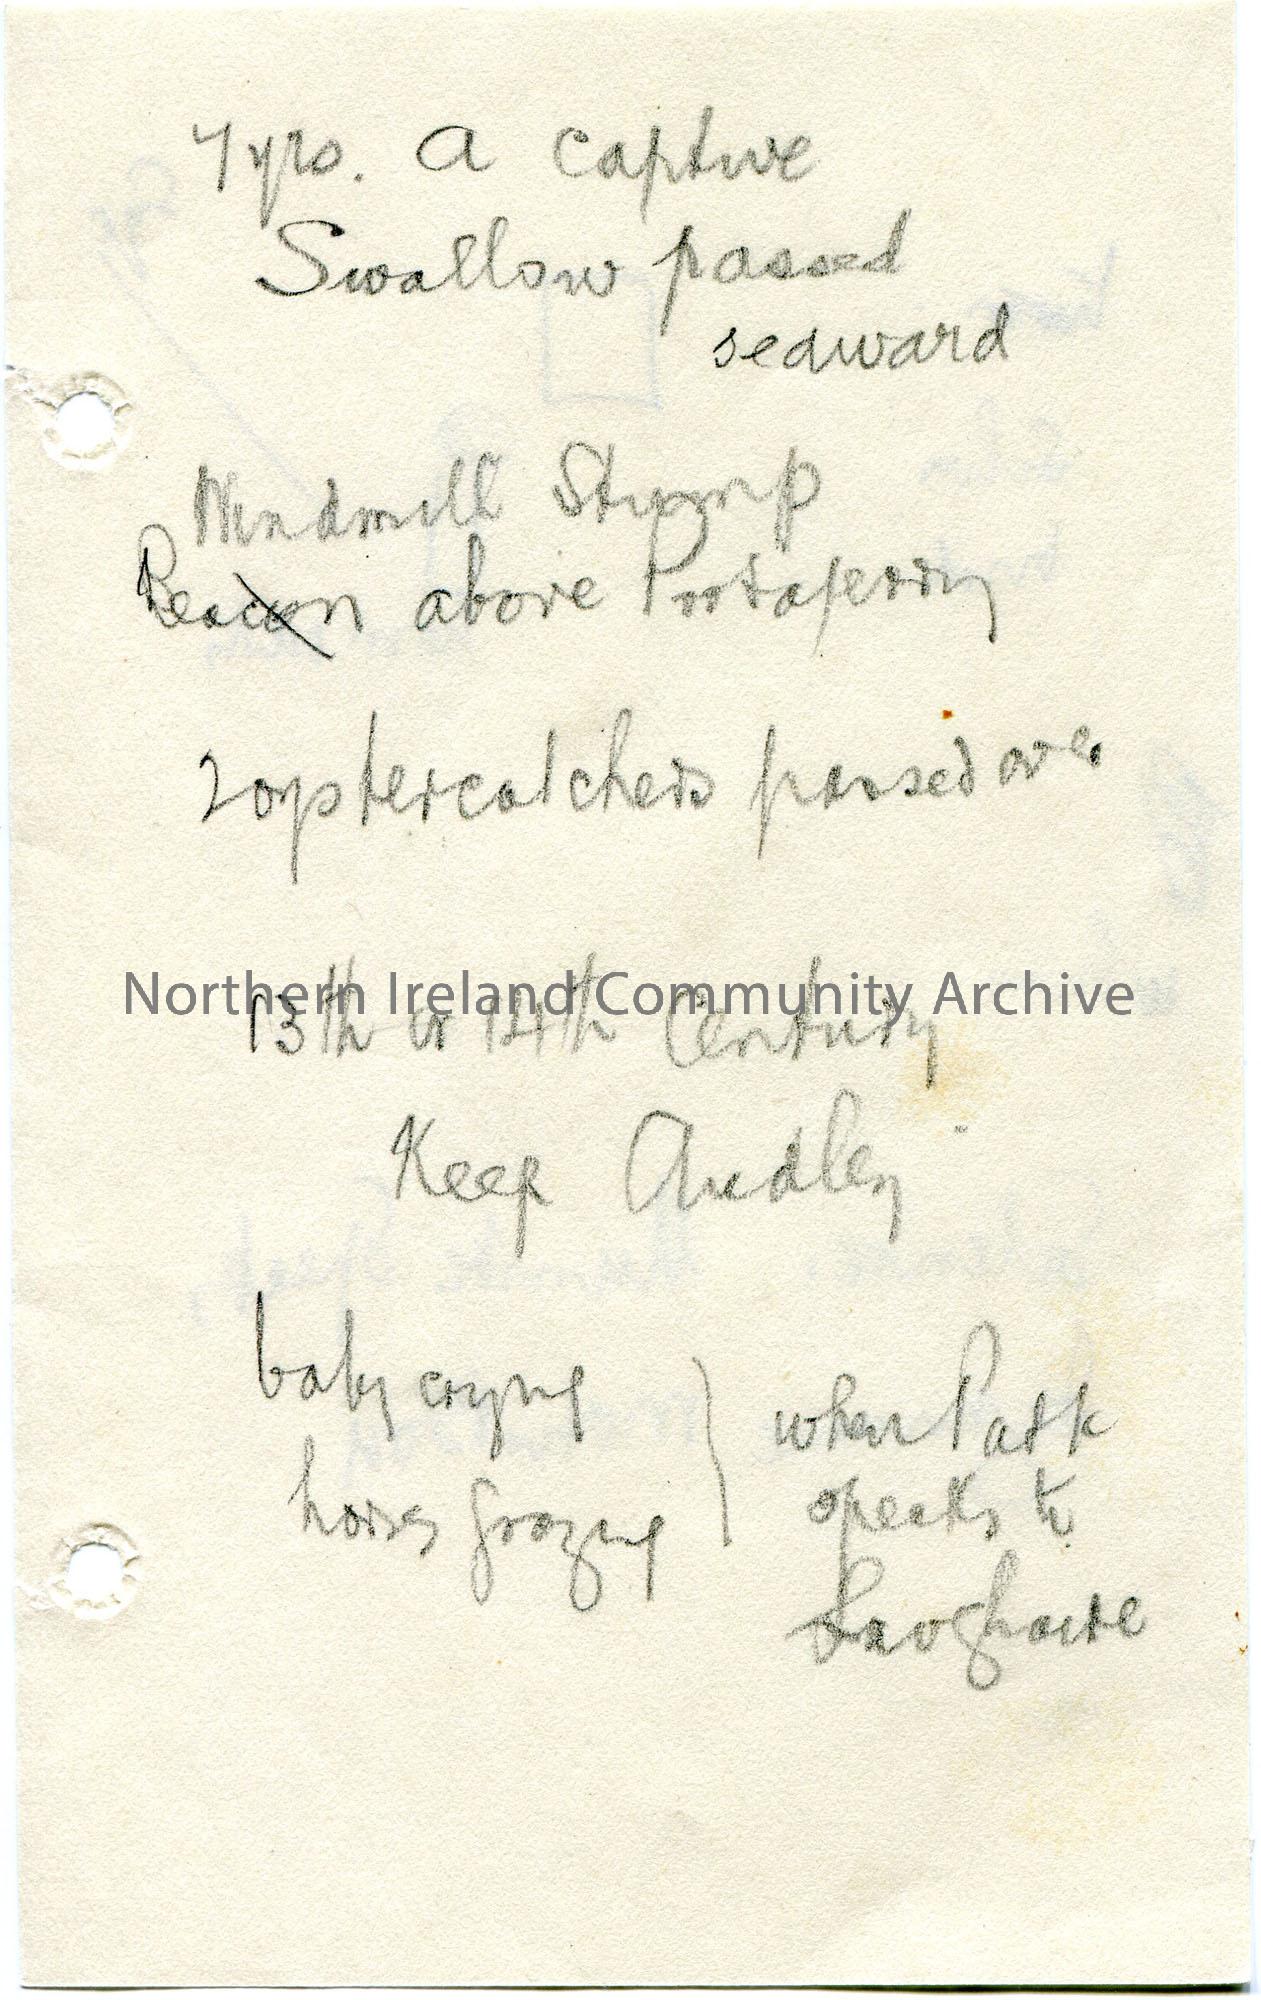 7 yrs. a captive
Swallow passed
seaward
Windmill Stump
Beacon above Portaferry
2 oystercatchers passed over
Northern Ireland Community Archive
13th or 14th Century
Keep Audley
baby crying
horses grazing
when Patk
speaks to
Laoghaire